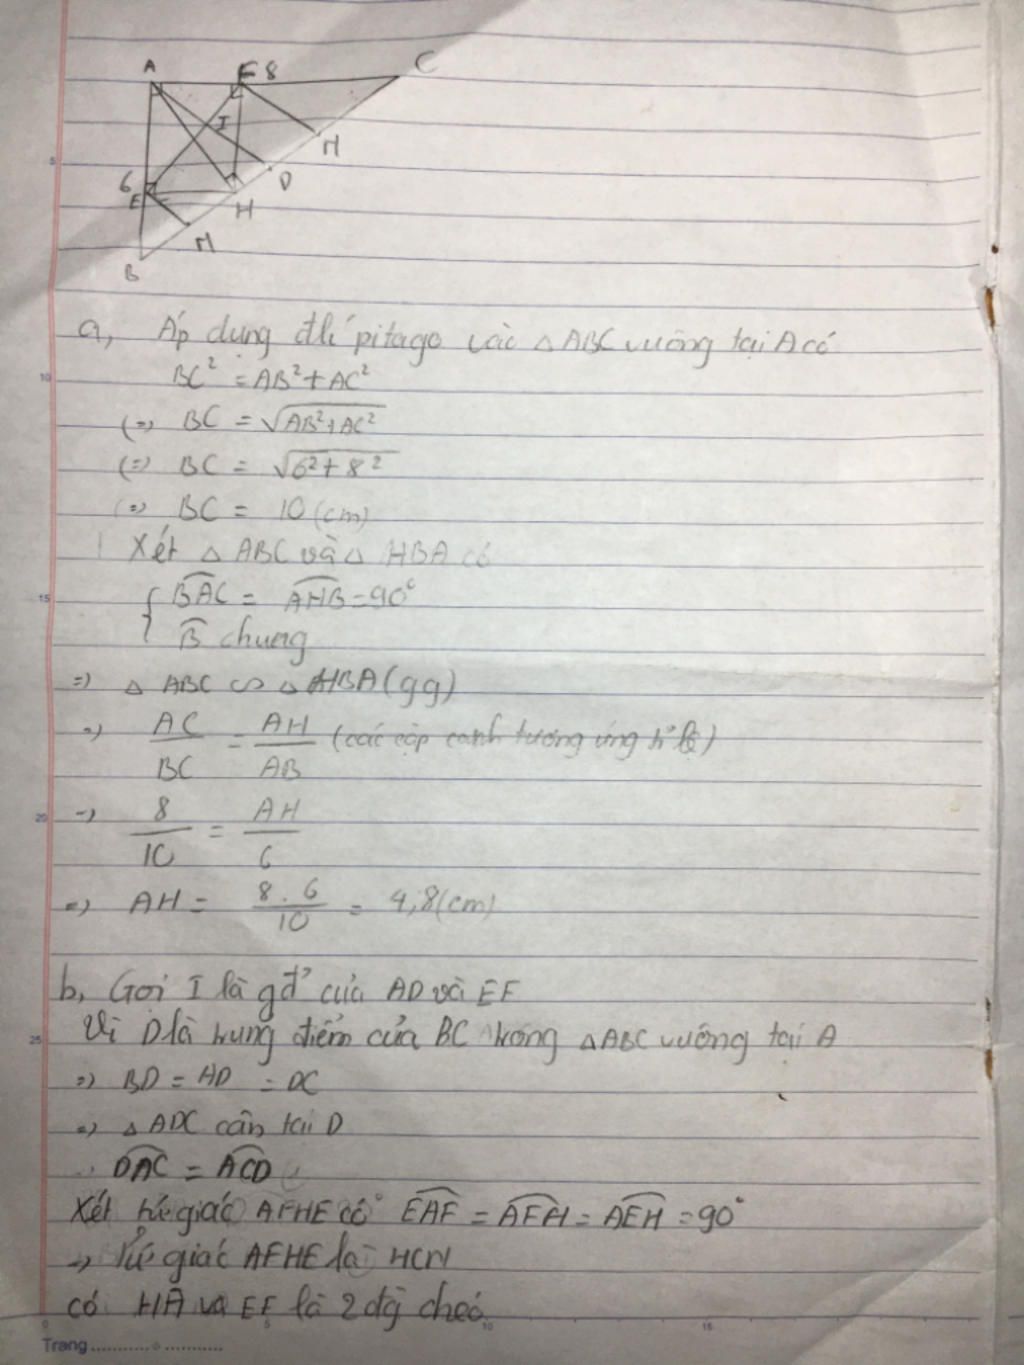 A
F 8
C
I
N
D
6
E
H
M
B
a, Áp dụng đlí pitago vào △ABC vuông tại A có
BC² = AB² + AC²
(=) BC = √AB²+AC²
(=) BC = √6²+8²
(=) BC = 10 (cm)
Xét △ ABC và △ HBA có
{ BAC = AHB = 90°
B chung
=) △ ABC ∽ △ HBA (gg)
=) AC/BC = AH/AB (các cặp cạnh tương ứng tỉ lệ)
=) 8/10 = AH/6
=) AH = 8.6/10 = 4,8 (cm)
b, Gọi I là gđ' của AD và EF
Vì D là trung điểm của BC trong △ABC vuông tại A
=) BD = AD = DC
=) △ ADC cân tại D
DAC = ACD
Xét tứ giác AFHE có EAF = AFH = AEH = 90°
=) Tứ giác AFHE là HCN
có HA và EF là 2 đg chéo
5
10
15
20
25
0 5 10 15
Trang